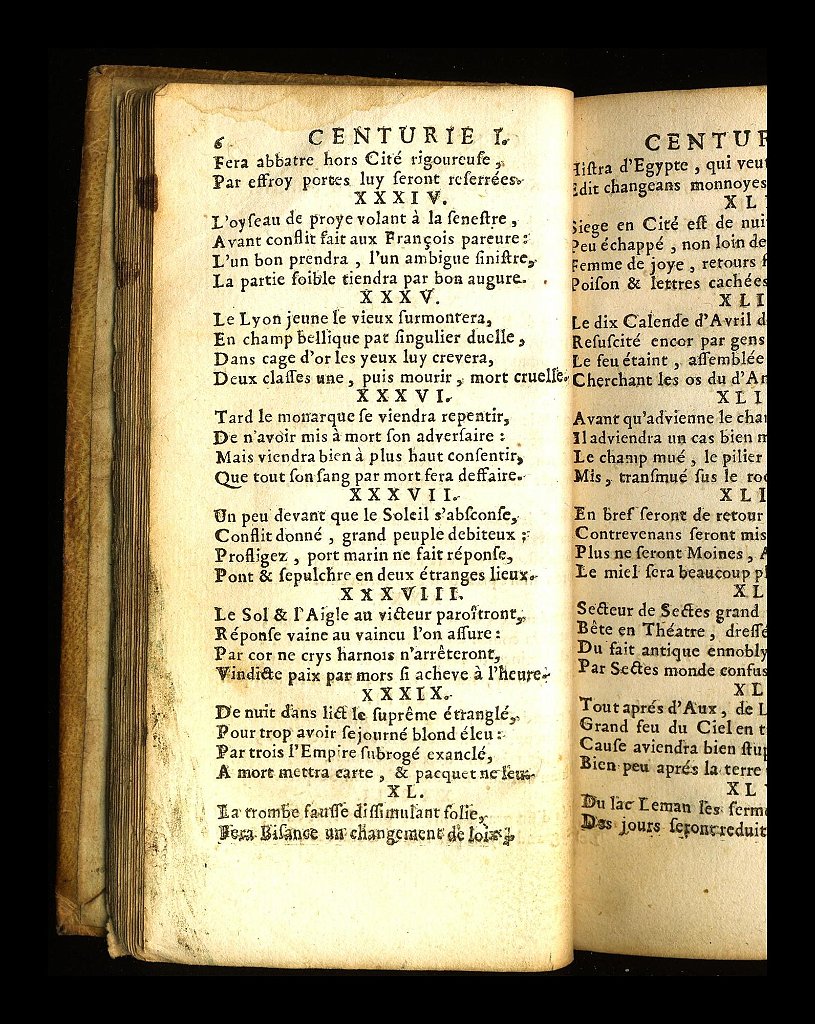 6 CENTURIE I.
Fera abbatre hors Cité rigoureuſe,
Par effroy portes luy ſeront reſerrées.
XXXIV.
L'oyſeau de proye volant à la feneſtre,
Avant conflit fait aux François pareure:
L'un bon prendra, l'un ambigue ſiniſtre,
La partie foible tiendra par bon augure.
XXXV.
Le Lyon jeune le vieux ſurmontera,
En champ bellique par ſingulier duelle,
Dans cage d'or les yeux luy crevera,
Deux claſſes une, puis mourir, mort cruelle.
XXXVI.
Tard le monarque ſe viendra repentir,
De n'avoir mis à mort ſon adverſaire:
Mais viendra bien à plus haut conſentir,
Que tout ſon ſang par mort fera deffaire.
XXXVII.
Un peu devant que le Soleil s'abſconſe,
Conflit donné, grand peuple debiteux:
Profligez, port marin ne fait réponſe,
Pont & ſepulchre en deux étranges lieux.
XXXVIII.
Le Sol & l'Aigle au victeur paroîtront,
Réponſe vaine au vaincu l'on aſſure:
Par cor ne crys harnois n'arrêteront,
Vindicte paix par mors ſi acheve à l'heure.
XXXIX.
De nuit dans lict le ſuprême étranglé,
Pour trop avoir ſejourné blond éleu:
Par trois l'Empire ſubrogé exanclé,
A mort mettra carte, & pacquet ne leu.
XL.
La trombe fauſſe diſſimulant folie,
Fera Biſance un changement de loix:
CENTUR
Hiſtra d'Egypte, qui veut
Edit changeans monnoyes
XLI
Siege en Cité eſt de nuit
Peu échappé, non loin de
Femme de joye, retours
Poiſon & lettres cachées
XLI
Le dix Calende d'Avril d
Reſuſcité encor par gens
Le feu étaint, aſſemblée
Cherchant les os du d'A
XLI
Avant qu'advienne le cha
Il adviendra un cas bien m
Le champ mué, le pilier
Mis, tranſmué ſus le roc
XLI
En bref ſeront de retour
Contrevenans ſeront mis
Plus ne ſeront Moines, A
Le miel ſera beaucoup pl
XL
Secteur de Sectes grand
Bête en Théatre, dreſſé
Du fait antique ennobly
Par Sectes monde confus
XL
Tout aprés d'Aux, de L
Grand feu du Ciel en t
Cauſe aviendra bien ſtup
Bien peu aprés la terre
XL
Du lac Leman les ſerm
Des jours ſeront reduit